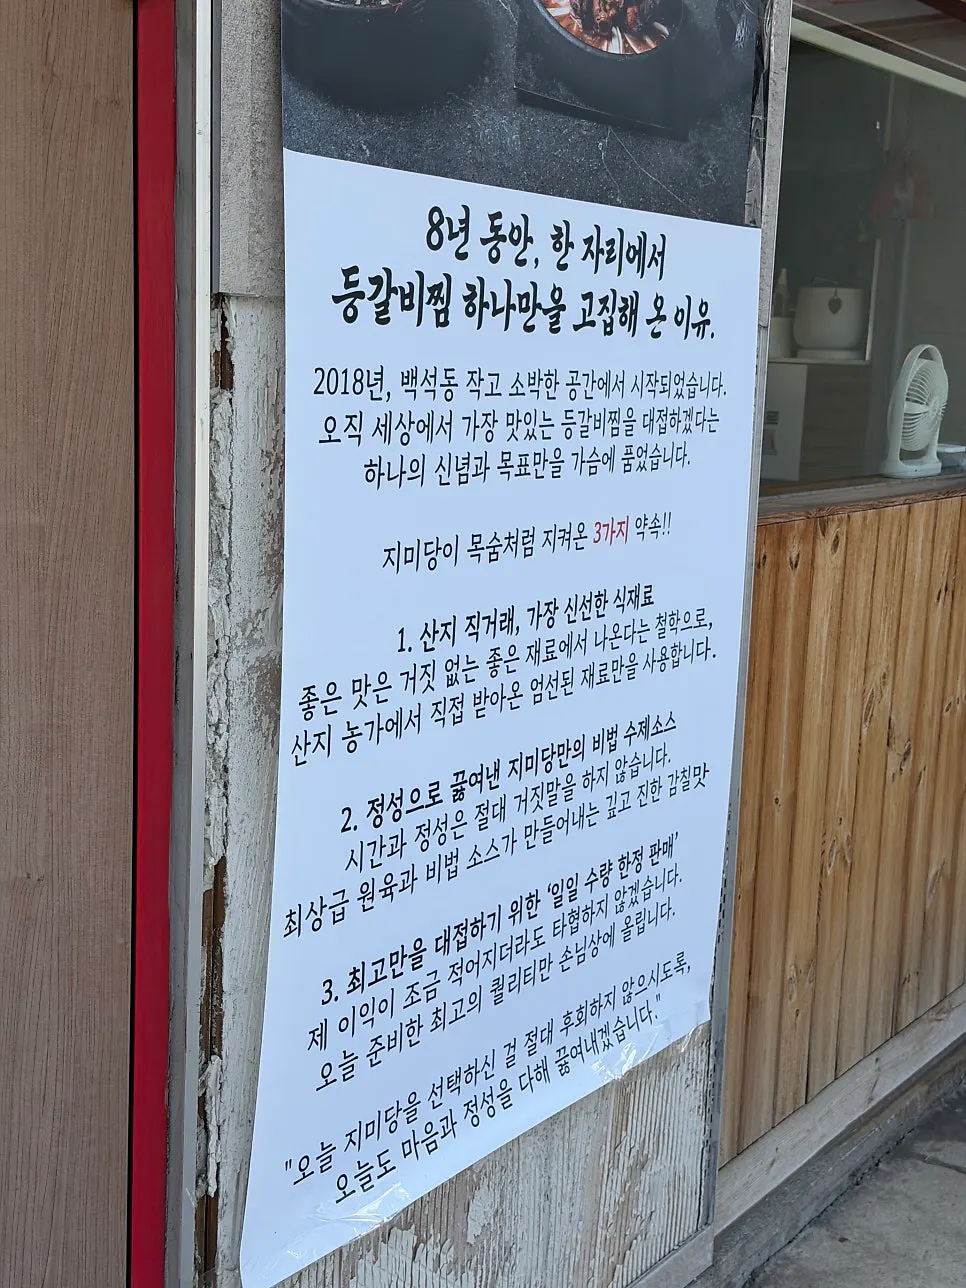 8년 동안, 한 자리에서
등갈비찜 하나만을 고집해 온 이유.
2018년, 백석동 작고 소박한 공간에서 시작되었습니다.
오직 세상에서 가장 맛있는 등갈비찜을 대접하겠다는
하나의 신념과 목표만을 가슴에 품었습니다.
지미당이 목숨처럼 지켜온 3가지 약속!!
1. 산지 직거래, 가장 신선한 식재료
좋은 맛은 거짓 없는 좋은 재료에서 나온다는 철학으로,
산지 농가에서 직접 받아온 엄선된 재료만을 사용합니다.
2. 정성으로 끓여낸 지미당만의 비법 수제소스
시간과 정성은 절대 거짓말을 하지 않습니다.
최상급 원육과 비법 소스가 만들어내는 깊고 진한 감칠맛
3. 최고만을 대접하기 위한 '일일 수량 한정 판매'
제 이익이 조금 적어지더라도 타협하지 않겠습니다.
오늘 준비한 최고의 퀄리티만 손님상에 올립니다.
"오늘 지미당을 선택하신 걸 절대 후회하지 않으시도록,
오늘도 마음과 정성을 다해 끓여내겠습니다."